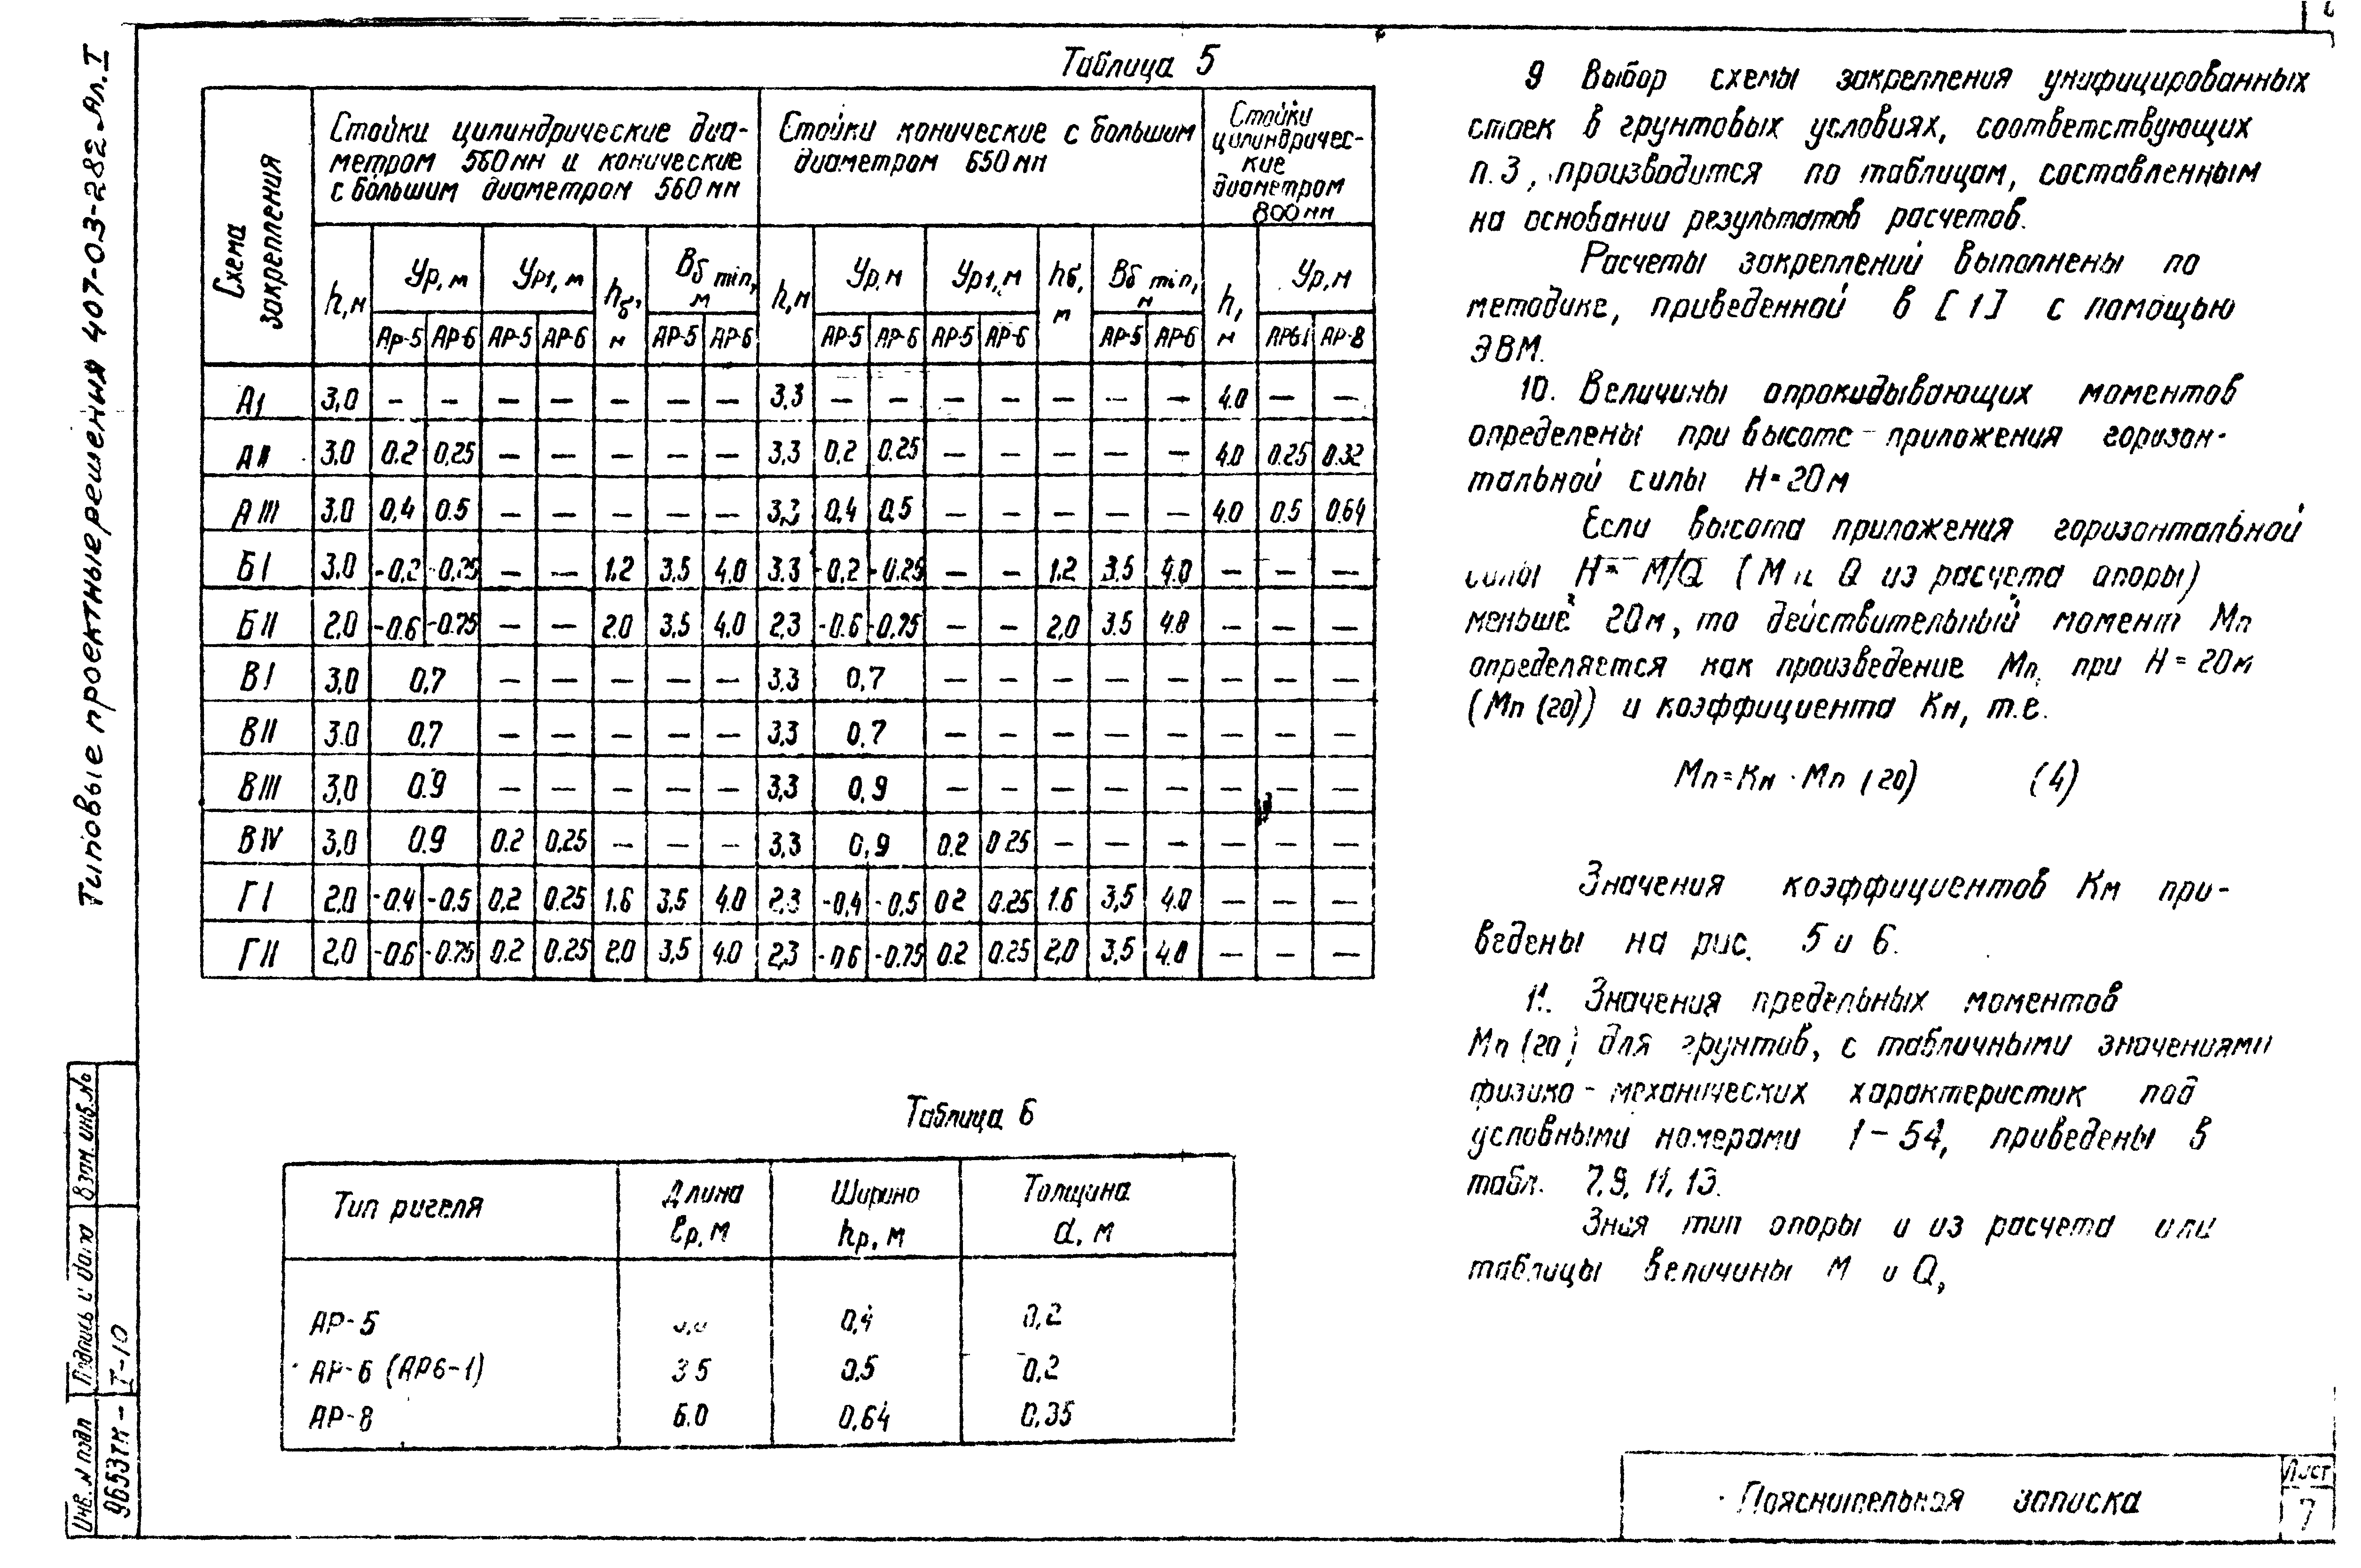 Типовые проектные решения 407-03-282 Ал. I
Таблица 5
Схема закрепления
Стойки цилиндрические диа-
метром 560мм и конические
с большим диаметром 560мм
Стойки конические с большим
диаметром 650мм
Стойки
цилиндричес-
кие
диаметром
800мм
h,м Ур,м Ур1,м hб,м Вб min,м h,м Ур,м Ур1,м hб,м Вб min,м h,м Ур,м
АР-5 АР-6 АР-5 АР-6 АР-5 АР-6 АР-5 АР-6 АР-5 АР-6 АР-5 АР-6 АР6-1 АР-8
АI 3,0 – – – – – – – 3,3 – – – – – – – 4.0 – –
АII 3,0 0.2 0,25 – – – – – 3,3 0,2 0.25 – – – – – 4.0 0.25 0.32
АIII 3,0 0,4 0.5 – – – – – 3,3 0,4 0,5 – – – – – 4.0 0.5 0.64
БI 3,0 -0,2 -0,25 – – 1.2 3.5 4,0 3.3 -0,2 -0.25 – – 1,2 3.5 4.0 – – –
БII 2,0 -0.6 -0.75 – – 2.0 3,5 4,0 2,3 -0.6 -0.75 – – 2,0 3.5 4.0 – – –
ВI 3,0 0,7 – – – – – 3.3 0,7 – – – – – – – –
ВII 3.0 0,7 – – – – – 3,3 0,7 – – – – – – – –
ВIII 3,0 0.9 – – – – – 3,3 0,9 – – – – – – – –
ВIV 3,0 0.9 0.2 0,25 – – – 3,3 0,9 0.2 0.25 – – – – – –
ГI 2,0 -0.4 -0.5 0,2 0.25 1.6 3,5 4.0 2,3 -0,4 -0,5 0.2 0.25 1.6 3,5 4.0 – – –
ГII 2,0 -0.6 -0.75 0.2 0,25 2,0 3,5 4.0 2,3 -0.6 -0.75 0.2 0.25 2,0 3.5 4.0 – – –
Таблица 6
Тип ригеля Длина ℓр,м Ширина hр,м Толщина d,м
АР-5 0,4 0,2
АР-6 (АР6-1) 3.5 0.5 0.2
АР-8 6.0 0,64 0,35
9 Выбор схемы закрепления унифицированных
стоек в грунтовых условиях, соответствующих
п.3, производится по таблицам, составленным
на основании результатов расчетов.
Расчеты закреплений выполнены по
методике, приведенной в [1] с помощью
ЭВМ.
10. Величины опрокидывающих моментов
определены при высоте приложения горизон-
тальной силы Н=20м
Если высота приложения горизонтальной
силы Н= М/Q (М и Q из расчета опоры)
меньше 20м, то действительный момент Мп
определяется как произведение Мп при Н=20м
(Мп (20)) и коэффициента Кн, т.е.
Мп=Кн · Мп (20) (4)
Значения коэффициентов Км при-
ведены на рис. 5 и 6.
11. Значения предельных моментов
Мп (20) для грунтов, с табличными значениями
физико-механических характеристик под
условными номерами 1-54, приведены в
табл. 7,9, 11, 13.
Зная тип опоры и из расчета или
таблицы величины М и Q,
Инв. N подл Подпись и дата Взам. инв. No
9653тм - Т-10
Пояснительная записка
Лист
7